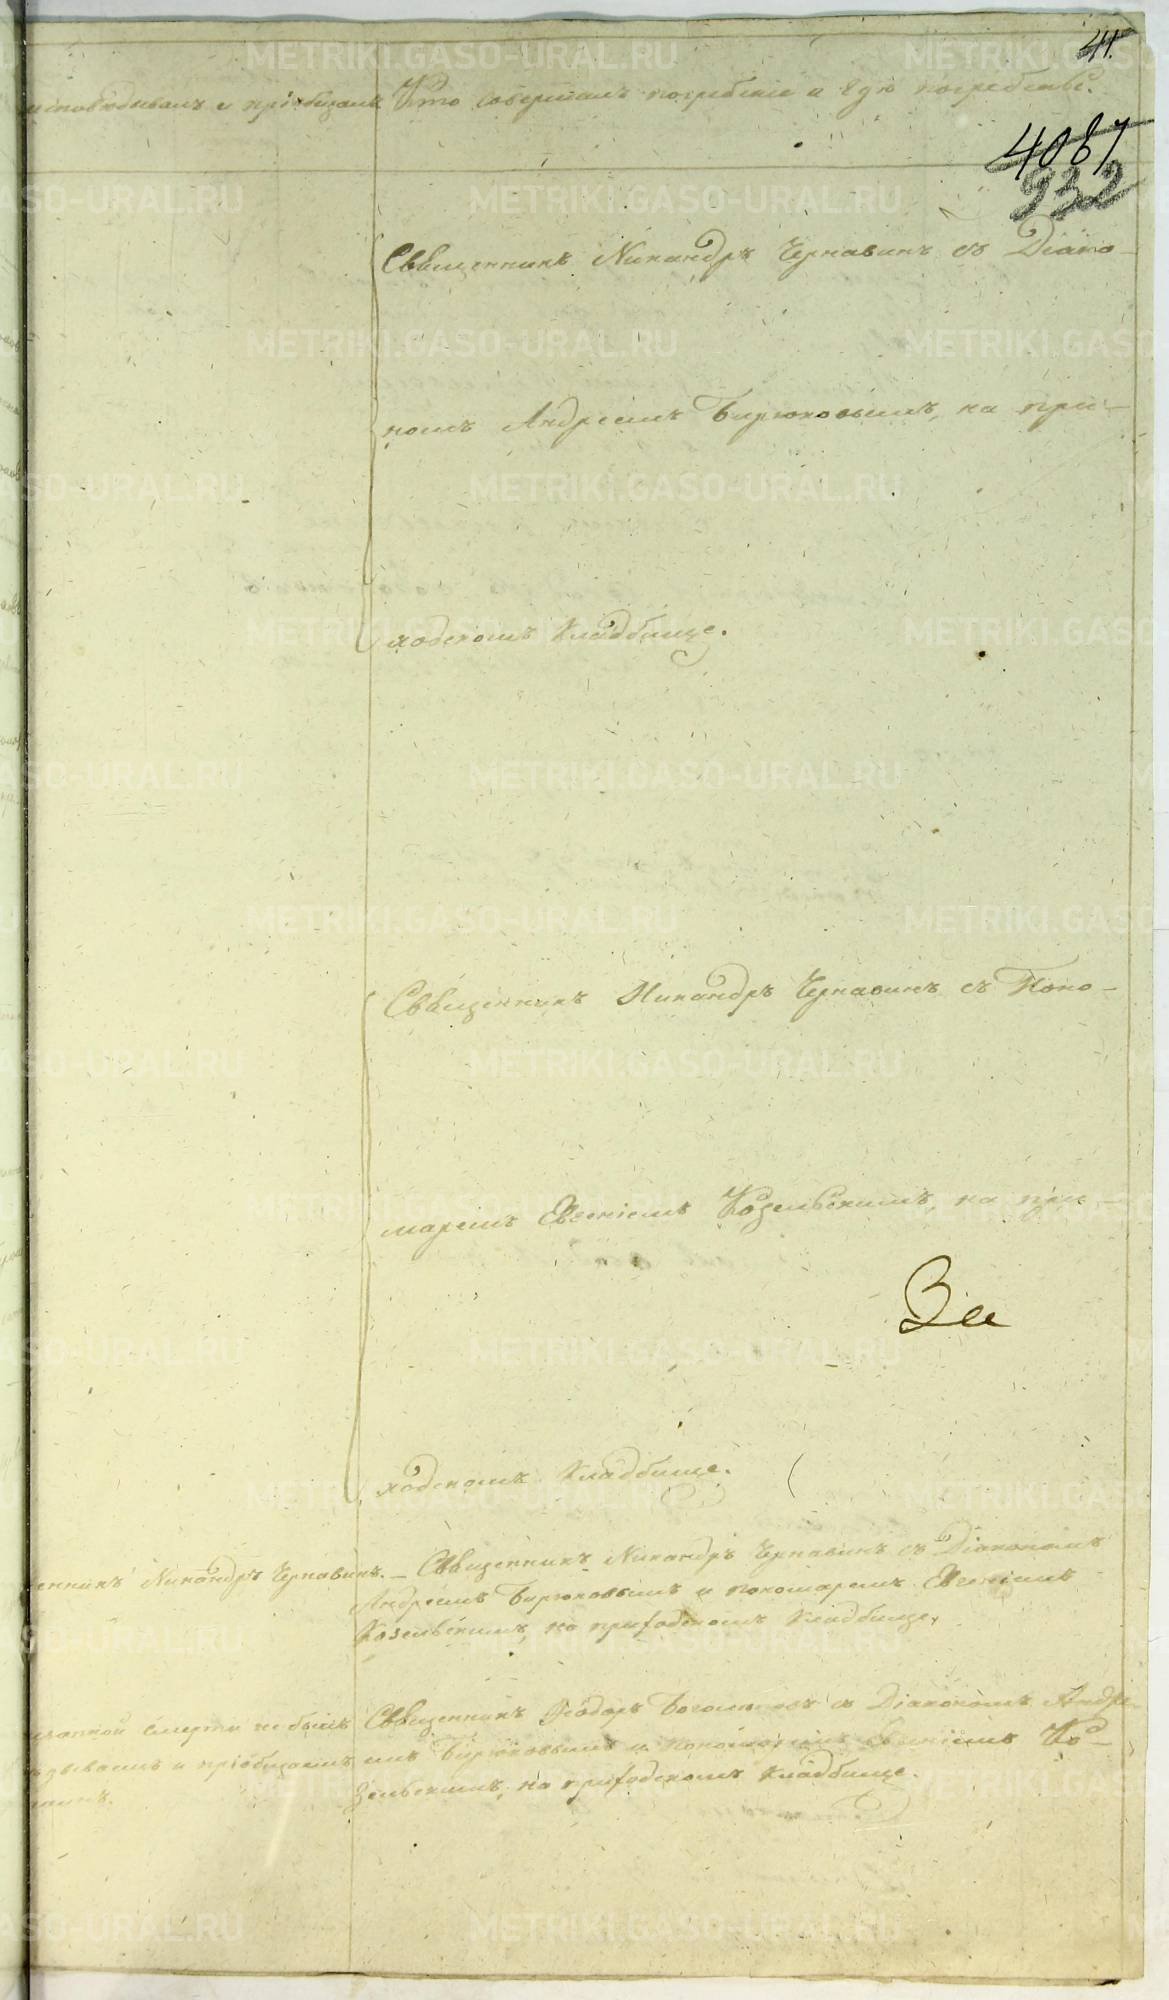 41.
исповѣдывалъ и пріобщалъ Кто совершалъ погребеніе и гдѣ погребенъ.
4087
932
Священникъ Никандръ Чернавинъ съ Діако-
номъ Андреемъ Бирюковымъ, на при-
ходскомъ кладбище.
Священникъ Никандръ Чернавинъ съ Поно-
маремъ Евгеніемъ Козельскимъ, на при-
За
ходскомъ кладбище.
енникъ Никандръ Чернавинъ. – Священникъ Никандръ Чернавинъ съ Діакономъ
Андреемъ Бирюковымъ и пономаремъ Евгеніемъ
Козельскимъ, на приходскомъ кладбище,
смерти не былъ Священникъ Ѳеодоръ съ Діакономъ Андре-
и пріобщаемъ емъ Бирюковымъ и пономаремъ Евгеніемъ Ко-
зельскимъ, на приходскомъ кладбище.
METRIKI.GASO-URAL.RU